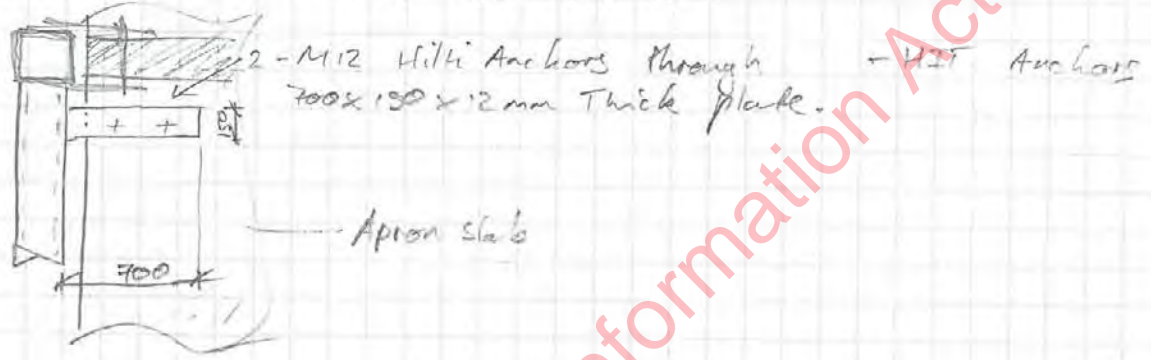 2 - M12 Hilti Anchors through - HIT Anchors
700 x 150 x 12 mm Thick plate.
150
Apron slab
700
formation Act